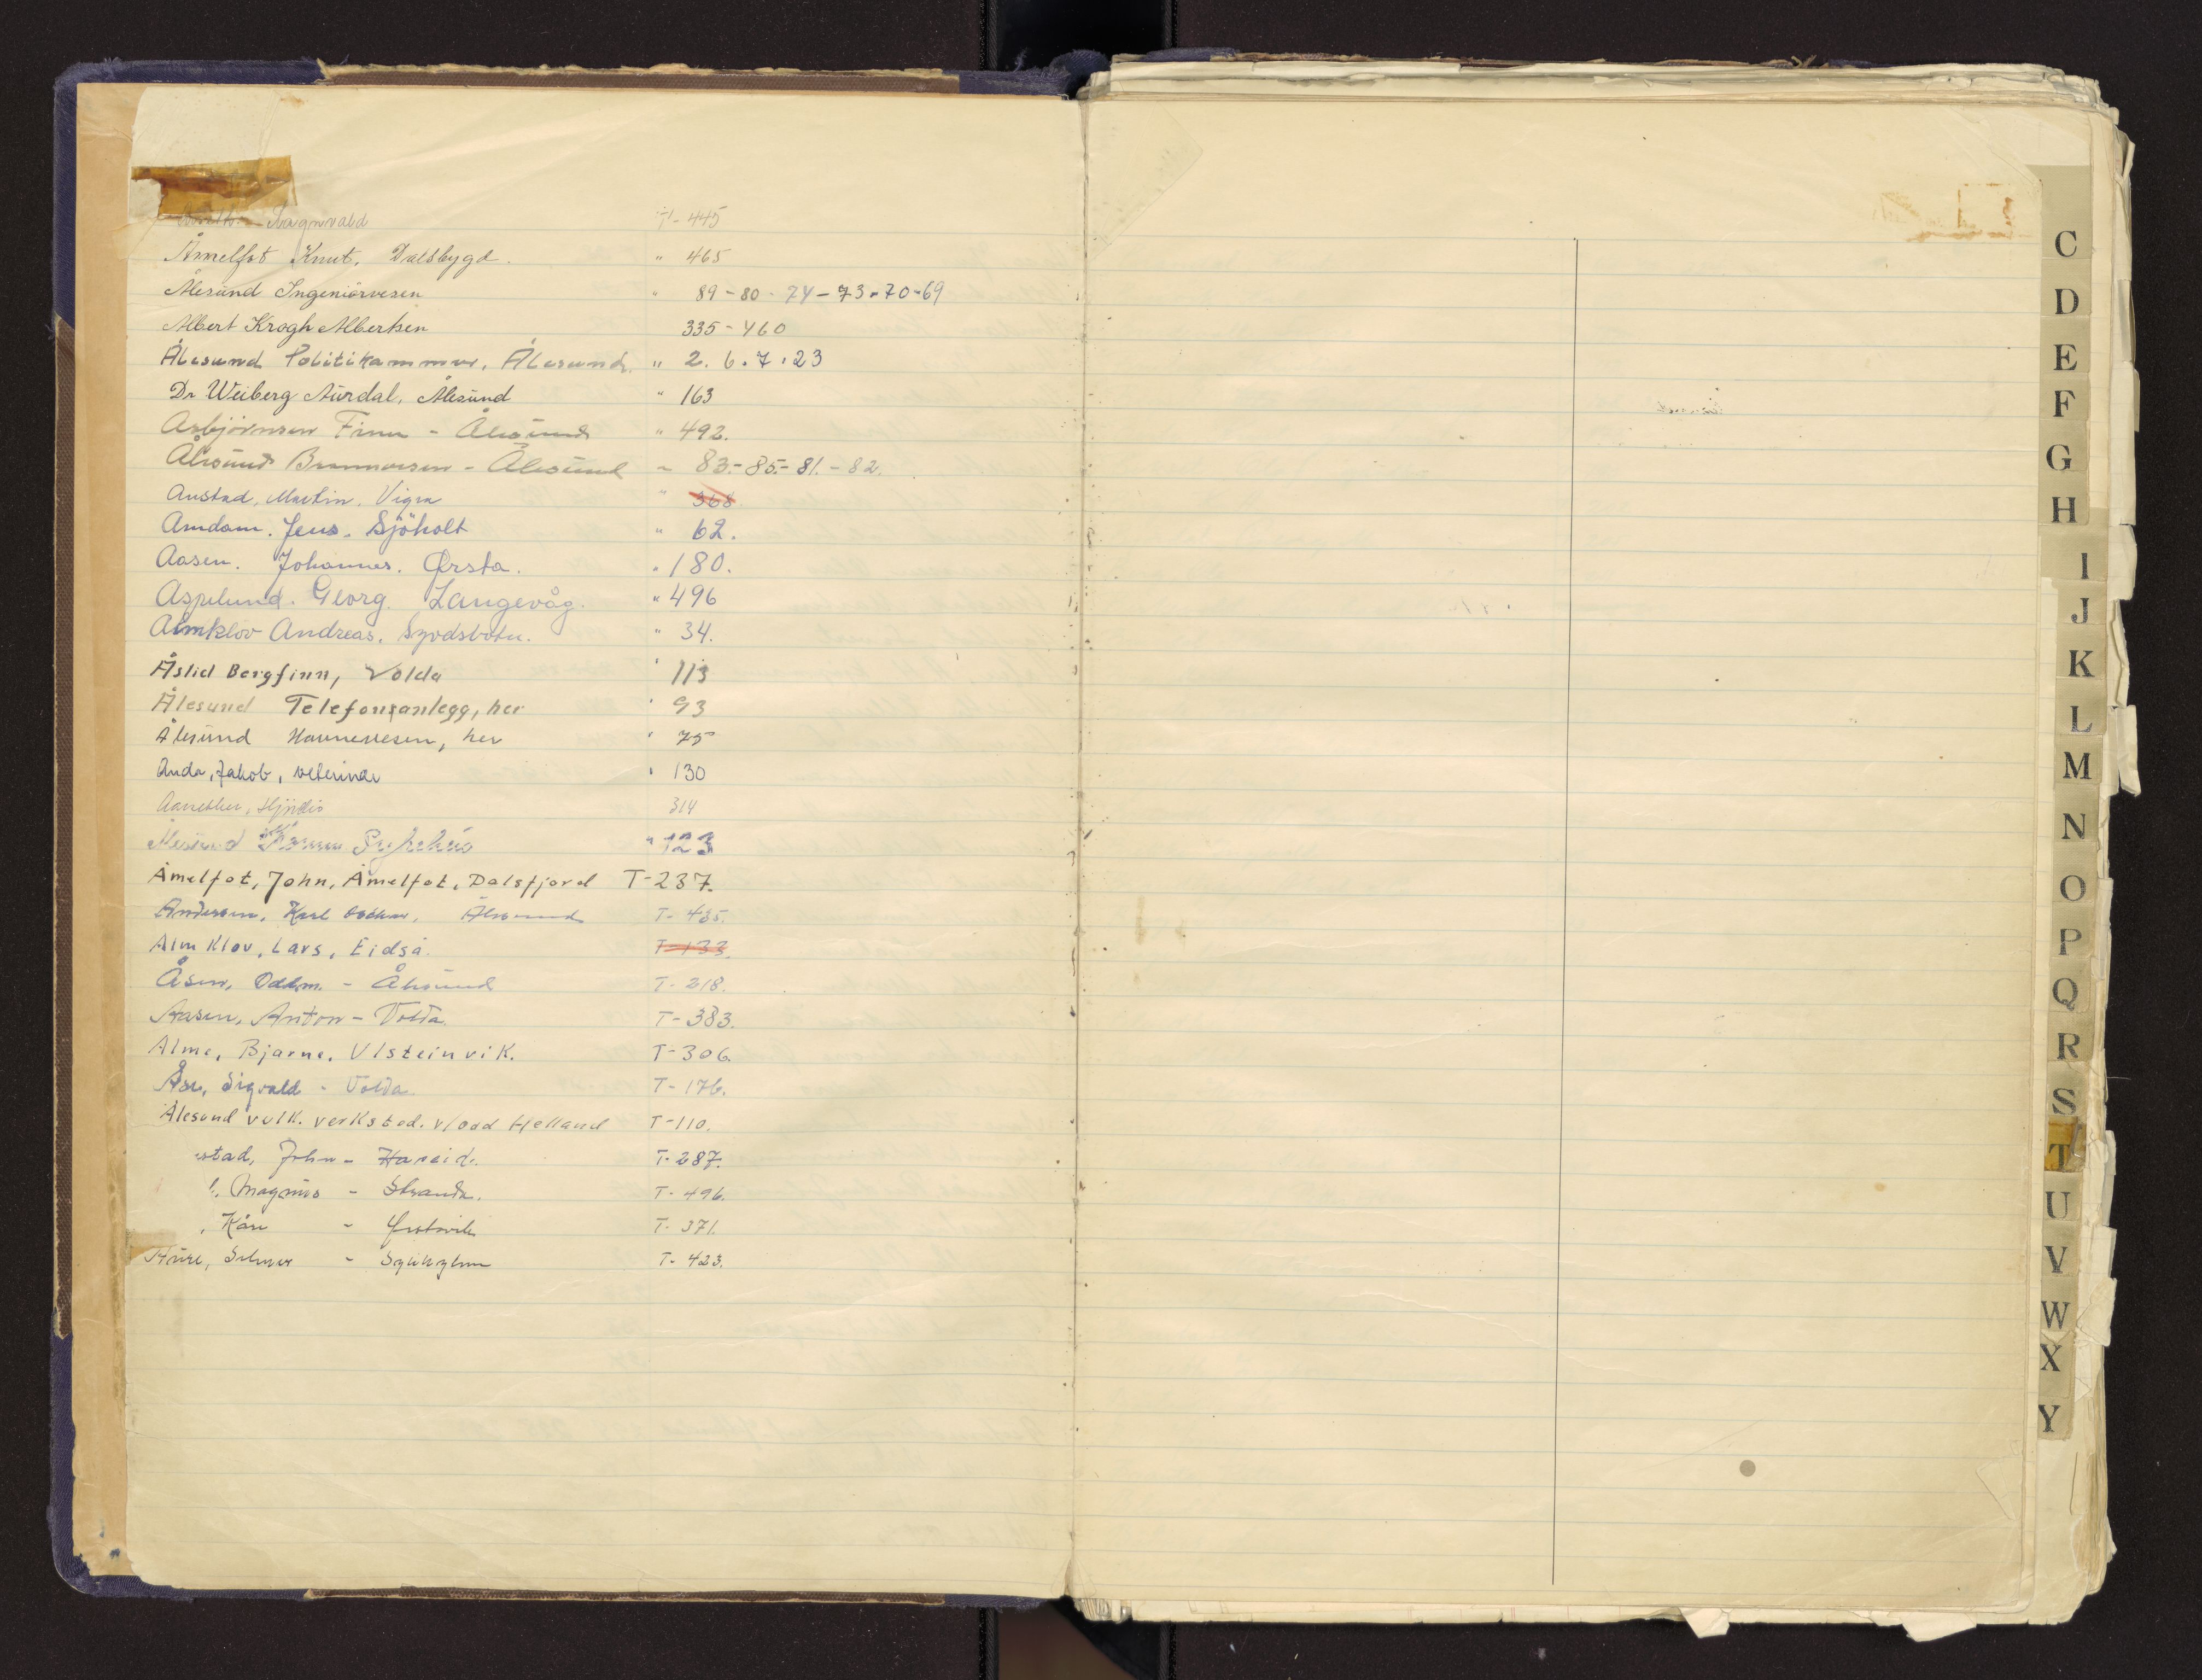 Ragnvald T-445
Åmelfot Knut. Dalsbygd. " 465
Ålesund Ingeniörvesen " 89-80-74-73-70-69
Albert Krogh Albertsen 335-460
Ålesund Politikammer, Ålesund. " 2. 6. 7. 23
Dr Weiberg Aurdal, Ålesund " 163
Asbjörnsen Finn - Ålesund " 492.
Ålesund Brannvesen - Ålesund " 83.-85.-81.-82.
Austad, Martin. Vigra " 368
Amdam. Jens. Sjöholt " 62.
Aasen. Johannes. Ørsta. " 180.
Aspelund. Georg. Langevåg. " 496
Almklov Andreas. Syvdsbotn. " 34.
Åslid Bergfinn, Volda " 113
Ålesund Telefonanlegg, her " 93
Ålesund Havnevesen, her " 75
Anda, Jakob, veterinær " 130
Hjördis 314
Ålesund Komm Sykehus " 123
Åmelfot, John, Åmelfot, Dalsfjord T-237.
Andersen, Karl Oskar, Ålesund T-435.
Almklov, Lars, Eidså. T-133.
Åsen, Oddm. - Ålesund T-218.
Aasen, Anton - Volda T-383.
Alme, Bjarne, Ulsteinvik. T-306.
Åse, Sigvald - Volda. T-176.
Ålesund vulk. verksted. v/Odd Helland T-110.
stad, John - Hareid. T-287.
Magnus - Stranda. T-496.
Kåre - T-371.
Aure, Selmer - Sykkylven T-423.
C
D
E
F
G
H
I
J
K
L
M
N
O
P
Q
R
S
T
U
V
W
X
Y